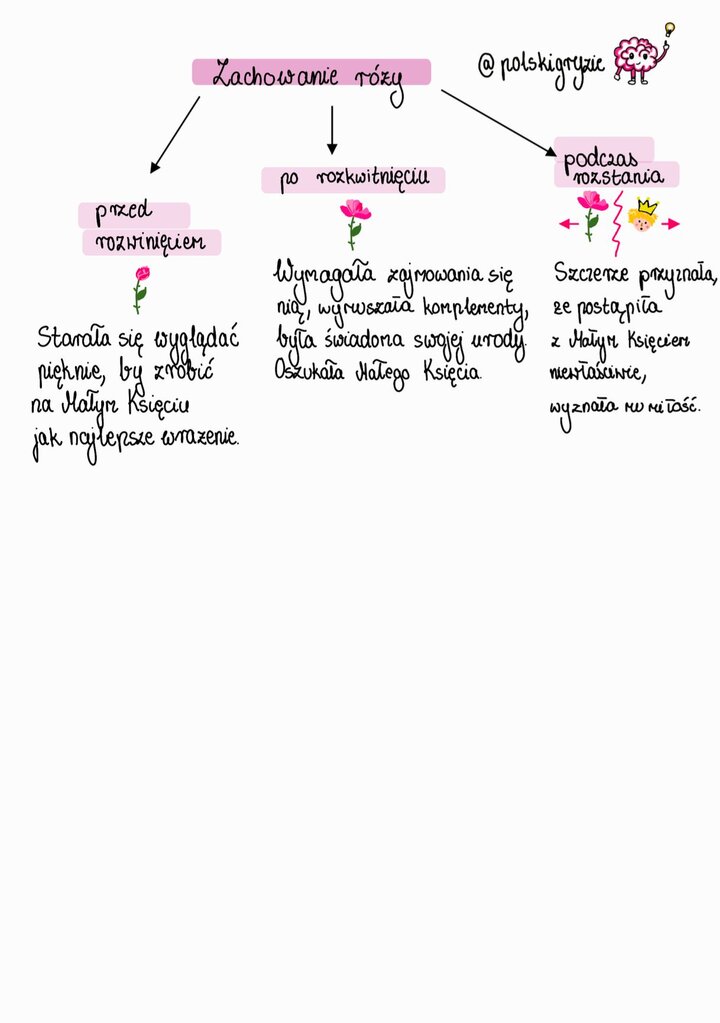 Zachowanie róży
@polskigryzie
przed
rozwinięciem
Starała się wyglądać
pięknie, by zrobić
na Małym Księciu
jak najlepsze wrażenie.
po rozkwitnięciu
Wymagała zajmowania się
nią, wymuszała komplementy,
była świadoma swojej urody.
Oszukała Małego Księcia.
podczas
rozstania
Szczerze przyznała,
że postąpiła
z Małym Księciem
niewłaściwie,
wyznała mu miłość.